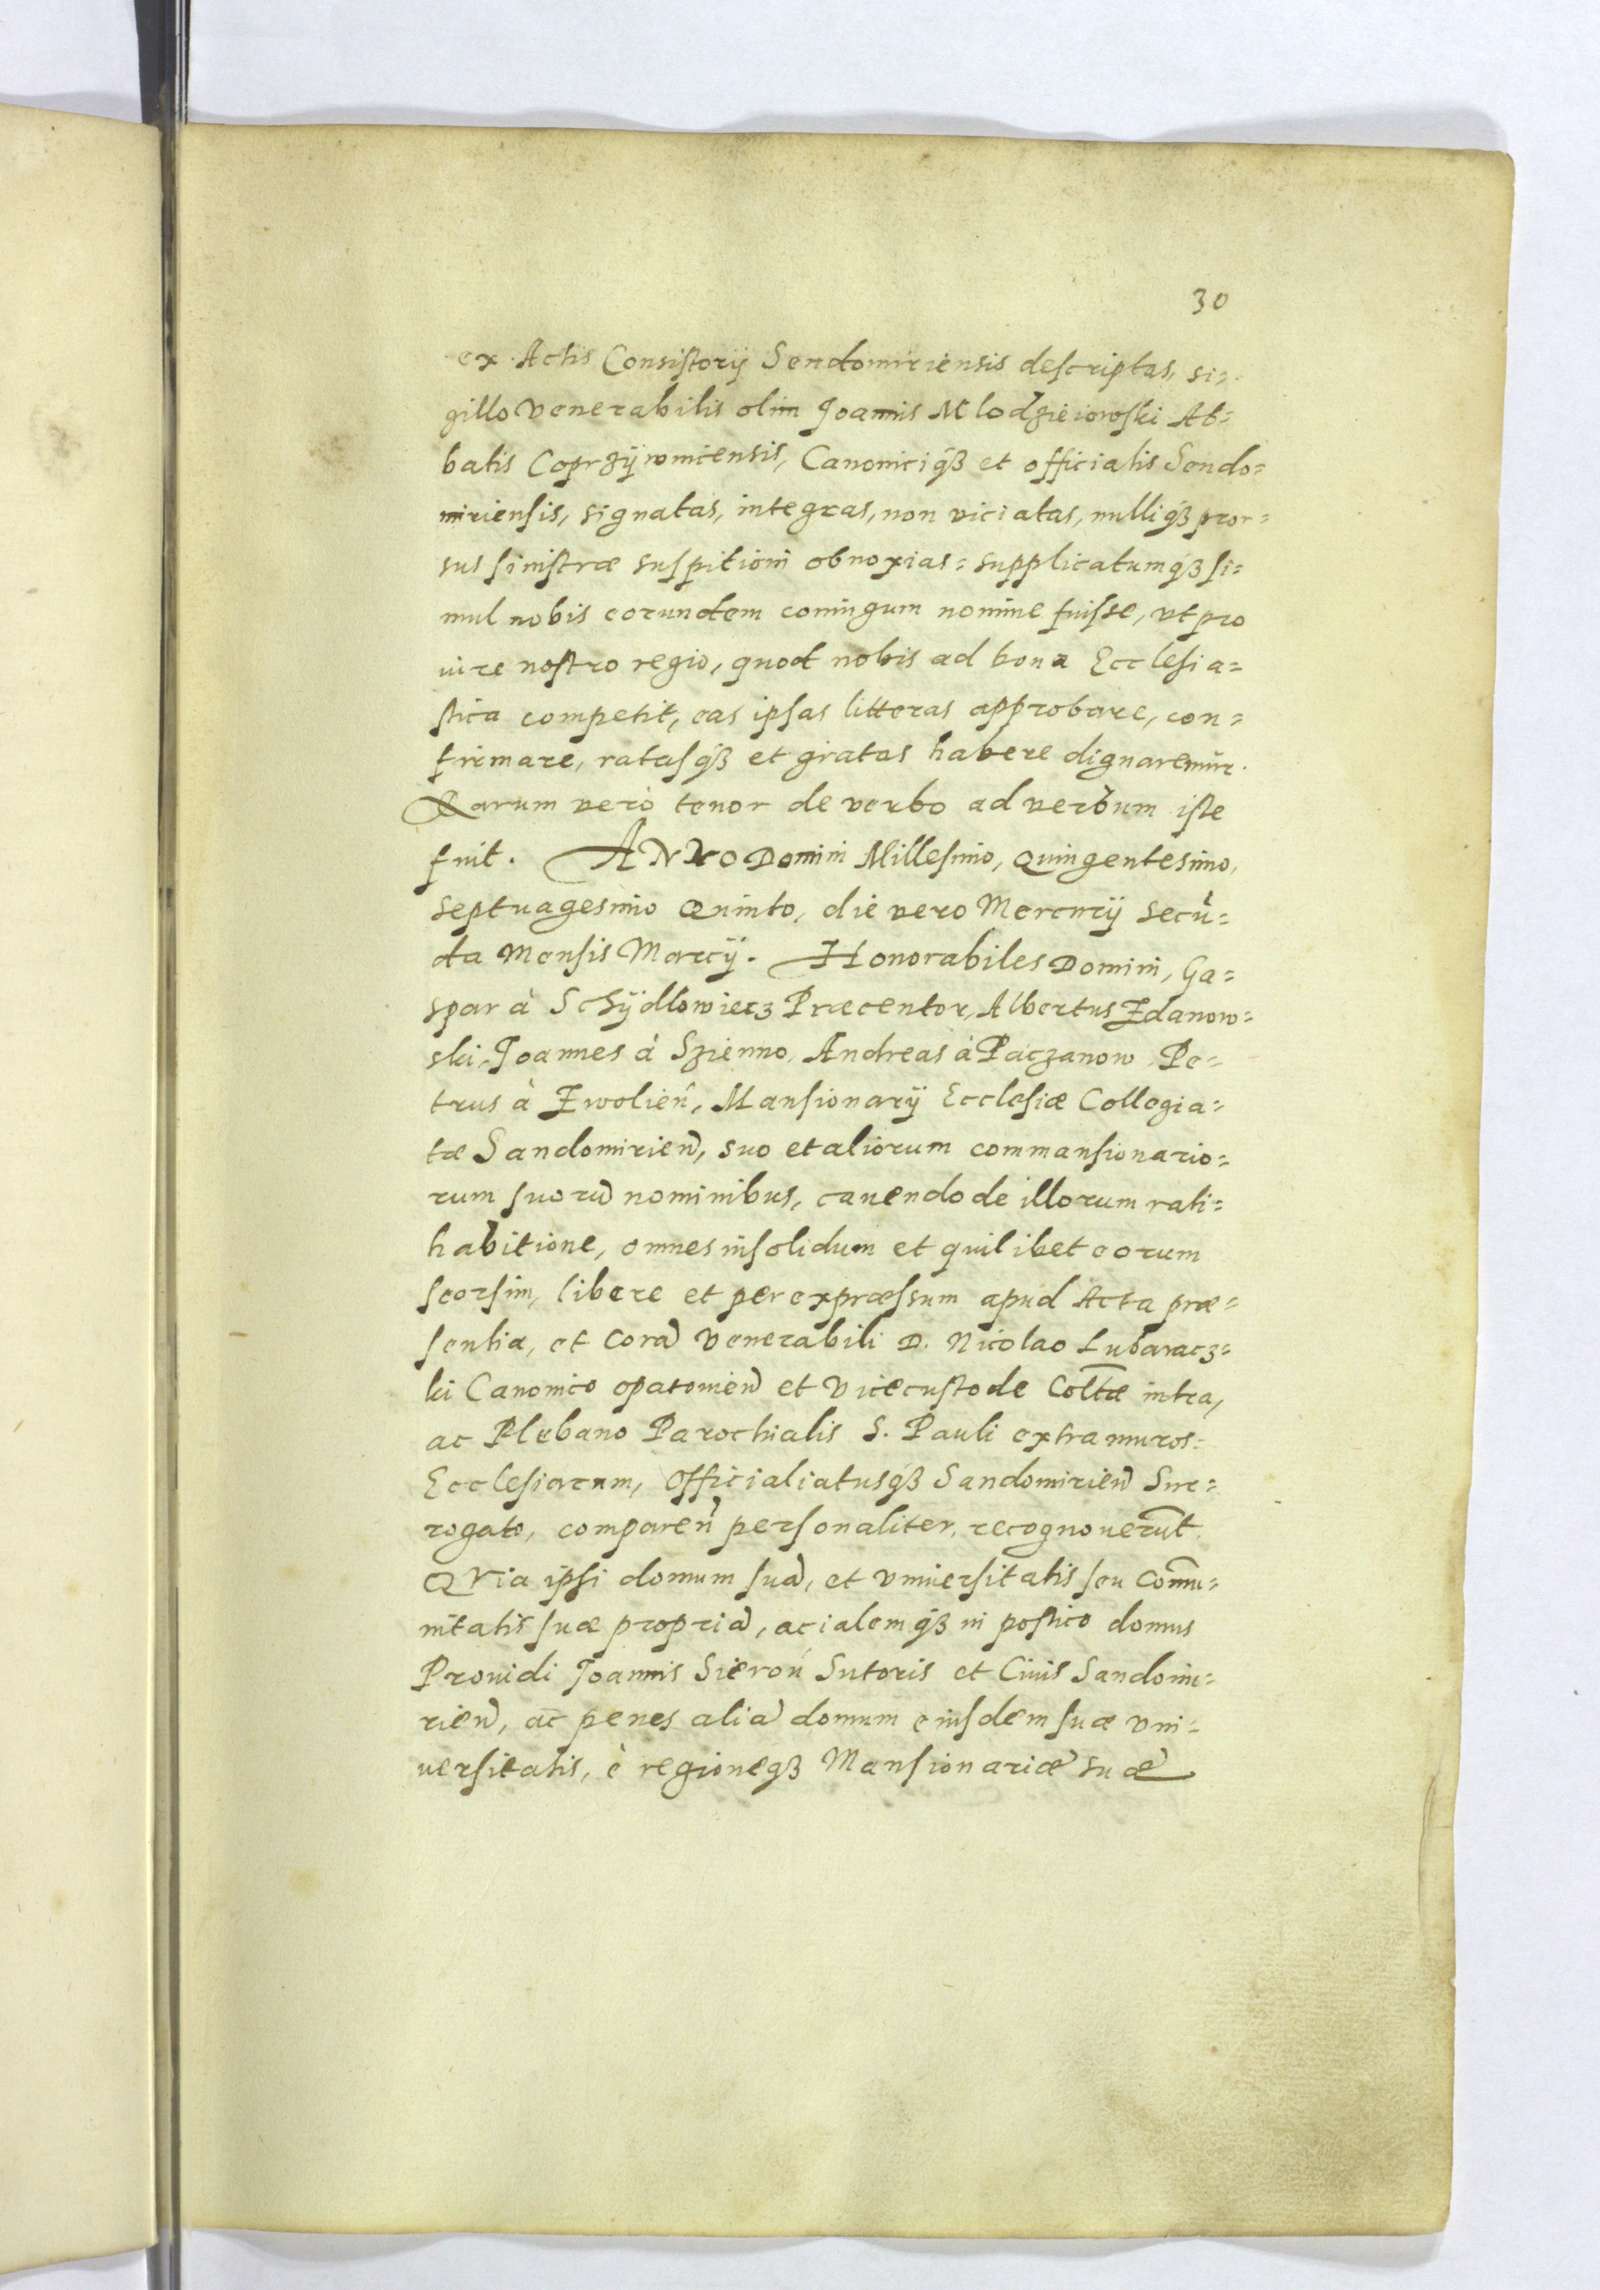 30
ex Actis Consistorij Sendomiriensis descriptas, si=
gillo Venerabilis olim Joannis Mlodzieiowski Ab=
batis Coprzÿwnicensis, Canoniciqß et officialis Sendo=
miriensis, signatas, integras, non viciatas, nulliqß pror=
sus sinistræ suspitioni obnoxias: supplicatumqß si=
mul nobis eorundem nomine fuisse, vt pro
iure nostro regio, quod nobis ad bona Ecclesia=
stica competit, eas ipsas litteras approbare, con=
firmare, ratasqß et gratas habere dignaremur.
Quarum verò tenor de verbo ad verbum iste
fuit. ANNO Domini Millesimo, Quingentesimo,
septuagesimo Quinto, die vero Mercurij secū=
da Mensis Marcij. Honorabiles Domini, Ga=
spar à Schÿdlowiecz Præcentor, Albertus Zdanow=
ski, Joannes à Szienno, Andreas à Paczanow, Pe=
trus à Zwolień, Mansionarij Ecclesiæ Collegia=
tæ Sandomirien̄, suo et aliorum commansionario=
rum suorū nominibus, cauendo de illorum rati=
habitione, omnes insolidum et quilibet eorum
seorsim, libere et per expræssum apud Acta præ=
sentia, et Corā Venerabili D. Nicolao Lubaracz=
ki Canonico opatouien̄ et Vicecustode Coll̄tæ intra,
ac Plebano Parochialis S. Pauli extra muros
Ecclesiarum, Officialiatusqß Sandomirien̄ Sur=
rogato, comparen̄ personaliter, recognouerūt.
QVia ipsi domum suā, et vniuersitatis seu Com̄u=
nitatis suæ propriā, acialemqß in postico domus
Prouidi Joannis Sieroń Sutoris et Ciuis Sandomi=
rien̄, ac penes aliā domum eiusdem suæ vni=
uersitatis, è regioneqß Mansionariæ suæ